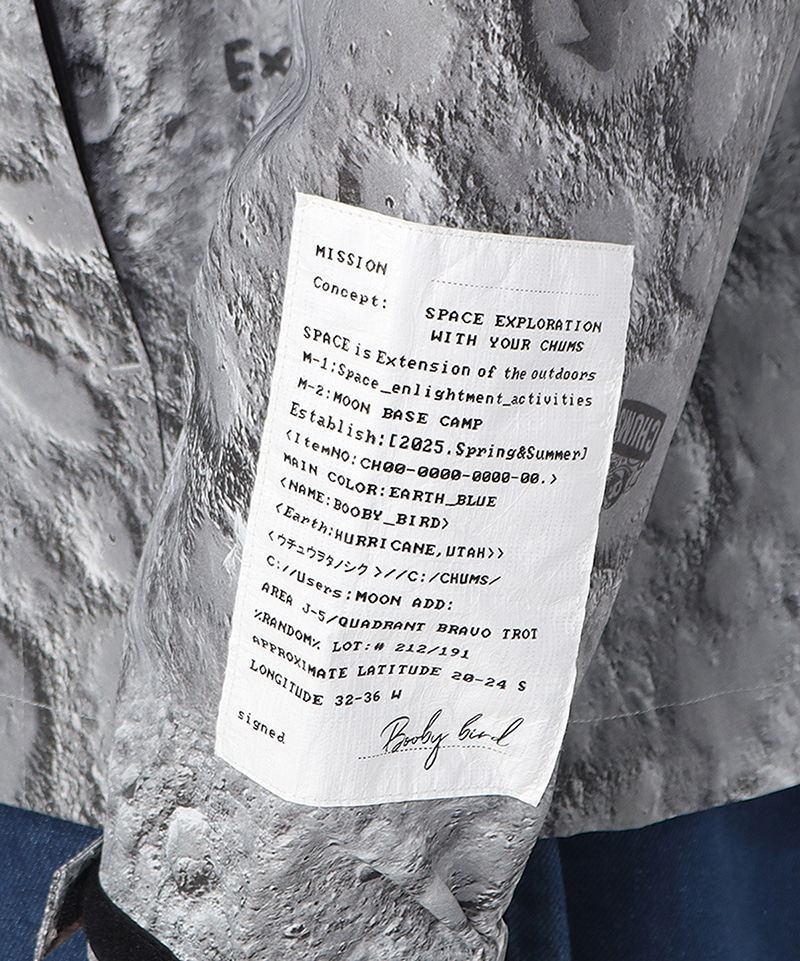 Ex
MISSION
Concept:
SPACE EXPLORATION
WITH YOUR CHUMS
SPACE is Extension of the outdoors
M-1:Space_enlightment_activities
M-2:MOON BASE CAMP
Establish:[2025.Spring&Summer]
<ItemNO:CH00-0000-0000-00.>
MAIN COLOR:EARTH_BLUE
<NAME:BOOBY_BIRD>
<Earth:HURRICANE,UTAH>>
<ウチュウヲタノシク>//C:/CHUMS/
C://Users:MOON ADD:
AREA J-5/QUADRANT BRAVO TROT
%RANDOM% LOT:# 212/191
APPROXIMATE LATITUDE 20-24 S
LONGITUDE 32-36 W
signed
Booby bird
CHUMS